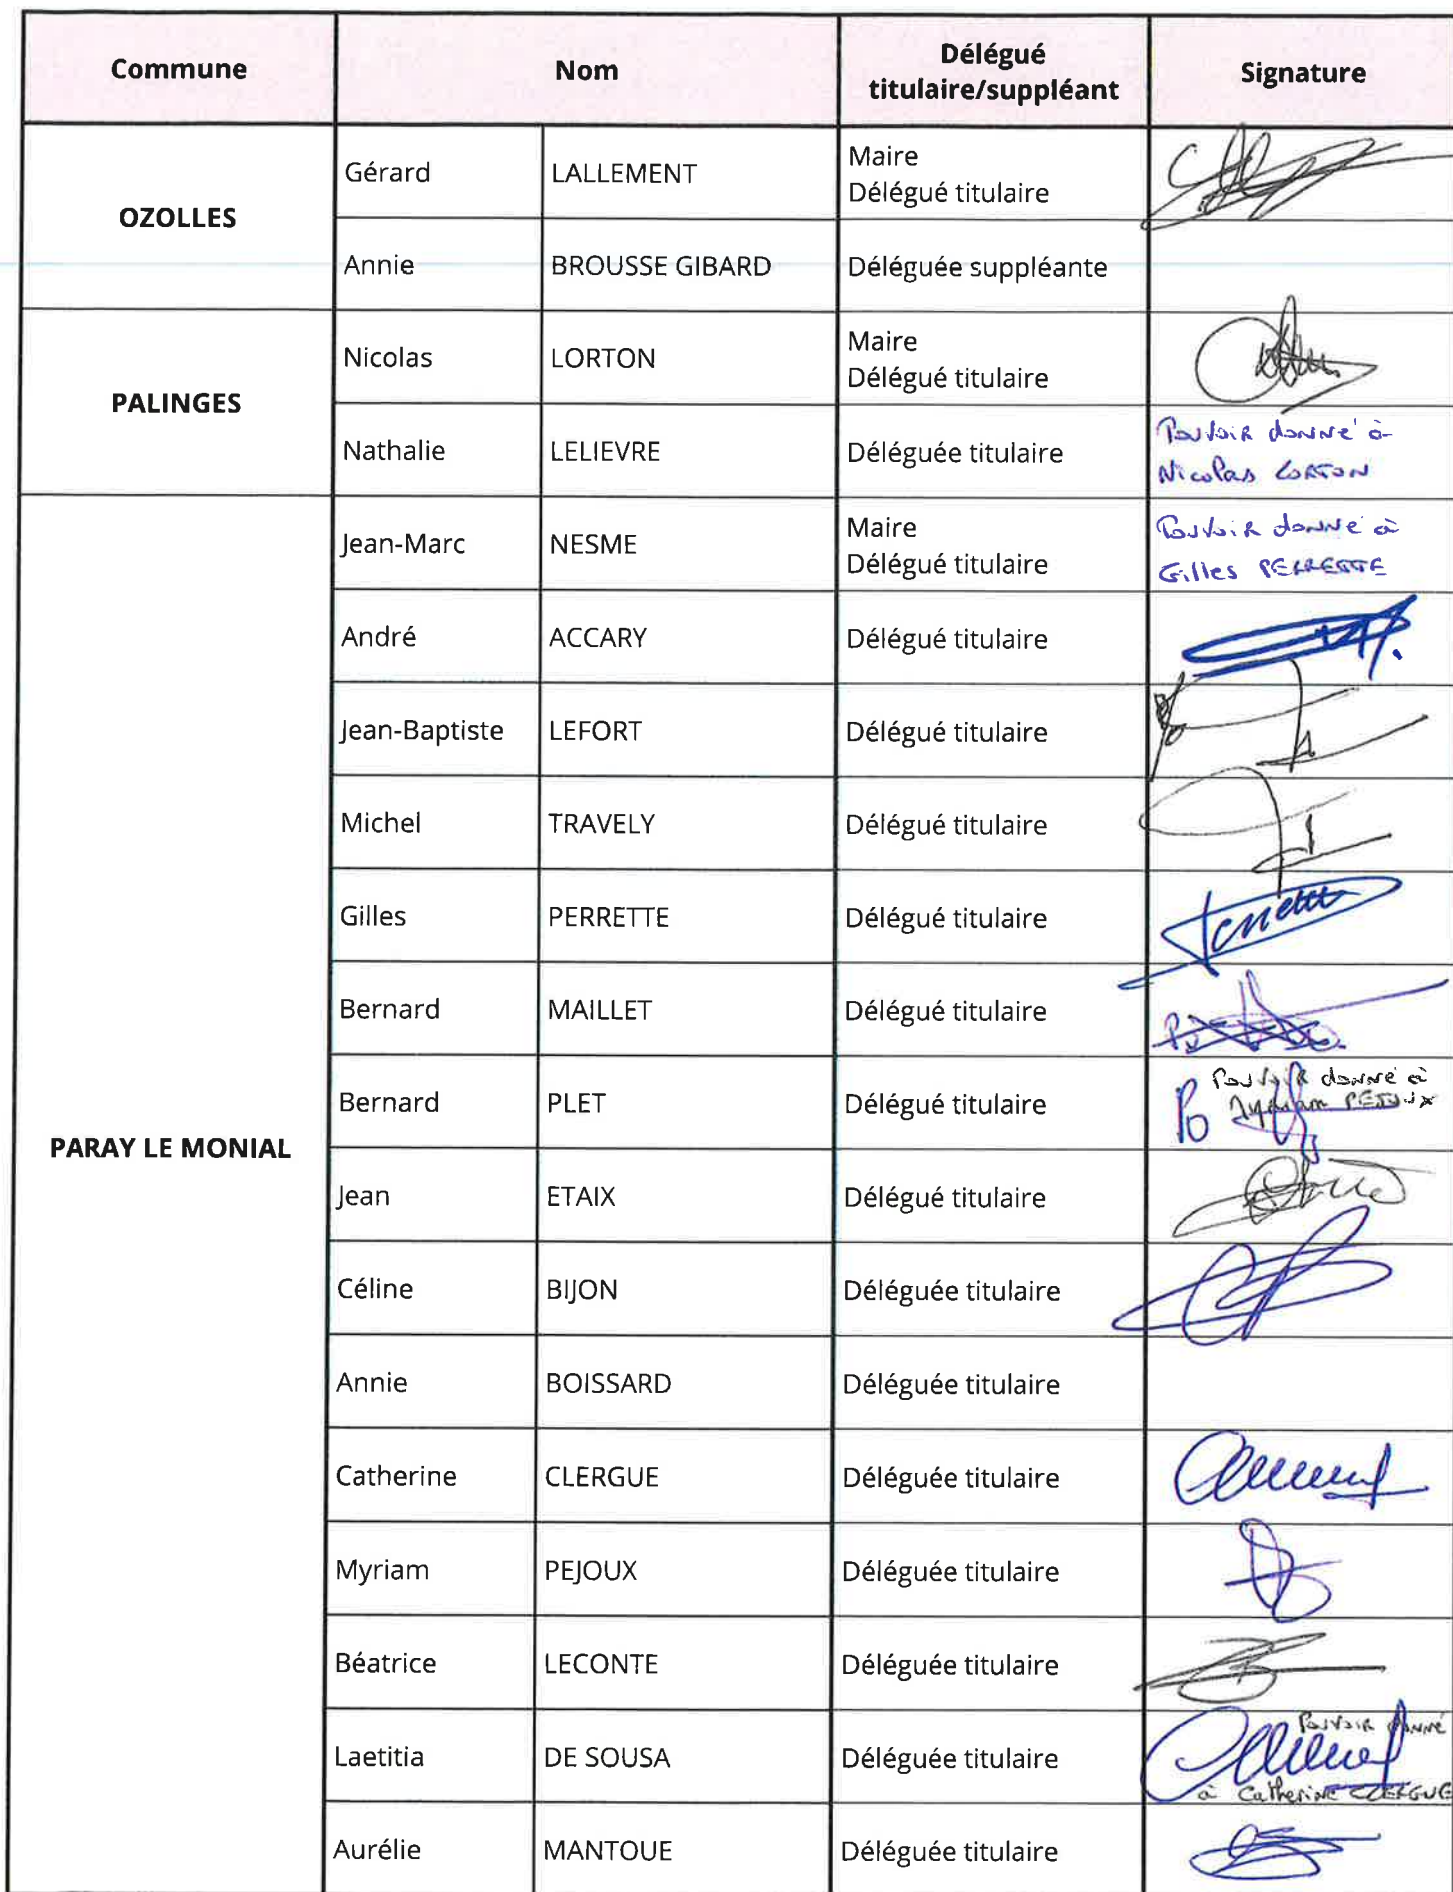 Commune Nom Délégué titulaire/suppléant Signature
OZOLLES
Gérard LALLEMENT Maire Délégué titulaire
Annie BROUSSE GIBARD Déléguée suppléante
PALINGES
Nicolas LORTON Maire Délégué titulaire
Nathalie LELIEVRE Déléguée titulaire Pouvoir donné à Nicolas LORTON
PARAY LE MONIAL
Jean-Marc NESME Maire Délégué titulaire Pouvoir donné à Gilles PERRETTE
André ACCARY Délégué titulaire
Jean-Baptiste LEFORT Délégué titulaire
Michel TRAVELY Délégué titulaire
Gilles PERRETTE Délégué titulaire
Bernard MAILLET Délégué titulaire
Bernard PLET Délégué titulaire Po Pouvoir donné à Myriam PEJOUX
Jean ETAIX Délégué titulaire
Céline BIJON Déléguée titulaire
Annie BOISSARD Déléguée titulaire
Catherine CLERGUE Déléguée titulaire
Myriam PEJOUX Déléguée titulaire
Béatrice LECONTE Déléguée titulaire
Laetitia DE SOUSA Déléguée titulaire Pouvoir donné à Catherine CLERGUE
Aurélie MANTOUE Déléguée titulaire